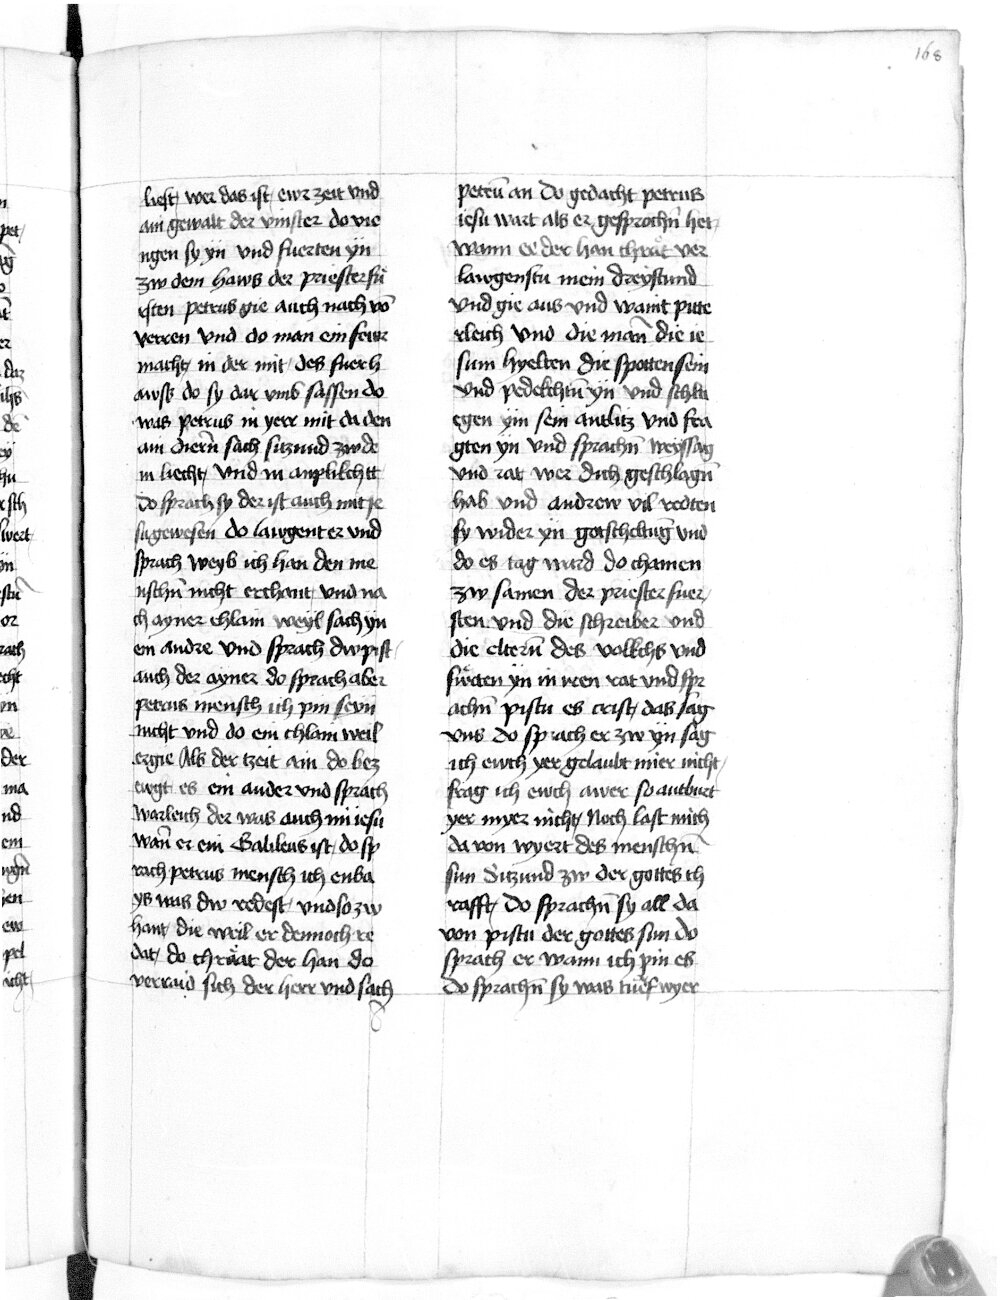 168
liest wer das ist ewr zeit vnd
ain gewalt der vinster do vie
ngen sy yn vnd fuerten yn
zw dem haws der priesterfü
rsten petrus gie auch nach vō
verren vnd do man ein fewr
macht in der mit des fuerh
awss do sy dar vmb sassen do
was petrus in yerr mit da den
ain diern̄ sach sitzund zw de
m liecht vnd in anplikchtt
do sprach sy der ist auch mit je
su gewesen do lawgent er vnd
sprach weyb ich han den me
nschn̄ nicht erchant vnd na
ch ayner chlain weyl sach yn
ein andre vnd sprach dw pist
auch der ayner do sprach aber
petrus mensch ich pin seyn
nicht vnd do ein chlain weil
ergie als der tzeit ain do bez
ewgt es ein ander vnd sprach
warleich der was auch mi iesu
wan̄ er ein Galileus ist do sp
rach petrus mensch ich enba
ys was dw redest vnd so zw
hant die weil er dennoch re
dat do chräat der han do
verraid sich der herr vnd sach
petrū an do gedacht petrus
iesu wart als er gesprochn̄ het
wann ee der han chrät ver
lawgenstu mein dreystund
vnd gie aus vnd waint pitte
rleich vnd die man̄ die ie
sum hyelten die spotten sein
vnd pedekchtn̄ yn vnd schlu
egen yin sein antlitz vnd fra
gten yn vnd sprachn̄ weyssag
vnd rat wer dich geschlagn̄
hab vnd andrew vil redten
sy wider yn gotscheltūg vnd
do es tag ward do chamen
zw samen der priester fuer
sten vnd die schreiber vnd
die eltern̄ des volkchs vnd
fürten yn in iren rat vnd spr
achn̄ pistu es crist das sag
vns do sprach er zw yn sag
ich ewch yer gelaubt mier nicht
frag ich ewch awer so antburt
yer myer nicht Noch last mich
da von wyert des menschn̄
sun sitzund zw der gottes ch
rafft do sprachn̄ sy all da
von pistu der gottes sun do
sprach er wann ich pin es
do sprachn̄ sy was tüef wyer